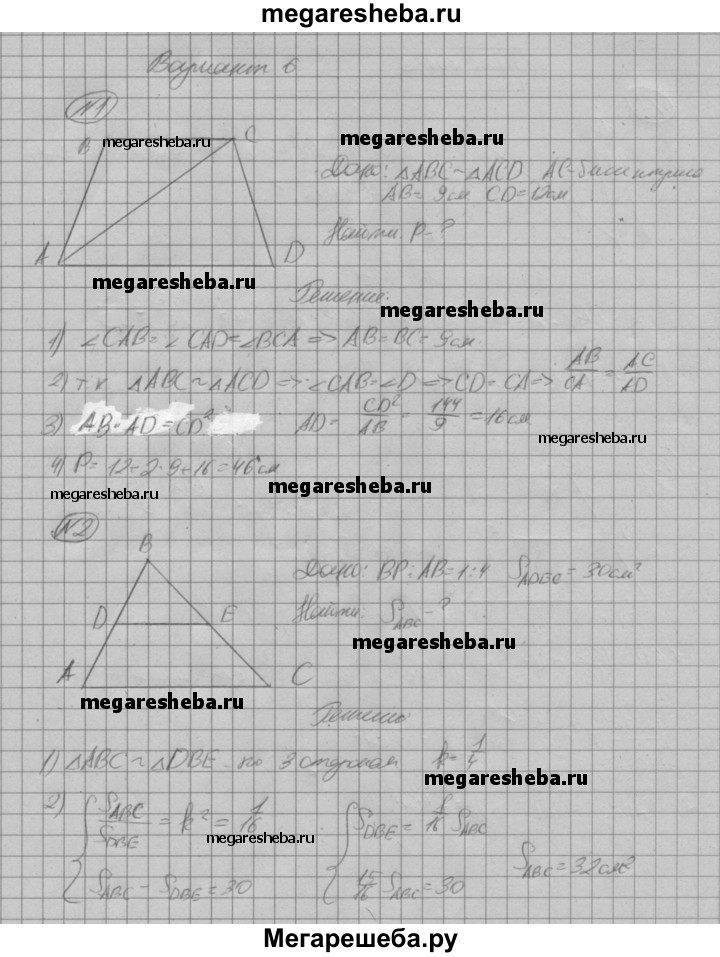 megaresheba.ru
Вариант 6
N1
B C
megaresheba.ru megaresheba.ru
Дано: △ABC ~ △ACD AC-биссектриса
AB = 9см CD = 12см
Найти: P - ?
A D
megaresheba.ru
Решение:
megaresheba.ru
1) ∠CAB = ∠CAD = ∠BCA => AB = BC = 9см
2) т.к △ABC ~ △ACD => ∠CAB = ∠D => CD = CA => AB/CA = AC/AD
3) AB · AD = CD² AD = CD²/AB = 144/9 = 16см
megaresheba.ru
4) P = 12 + 2·9 + 16 = 46см
megaresheba.ru megaresheba.ru
N2
B
Дано: BP : AB = 1:4 S ADEC = 30см²
D E
Найти: S ABC - ?
megaresheba.ru
A C
megaresheba.ru
Решение:
1) △ABC ~ △DBE по 3 сторонам k = 1/4
megaresheba.ru
2) { S ABC / S DBE = k² = 1/16 { S DBE = 1/16 S ABC
megaresheba.ru
S ABC - S DBE = 30 15/16 S ABC = 30 S ABC = 32см²
Мегарешеба.ру